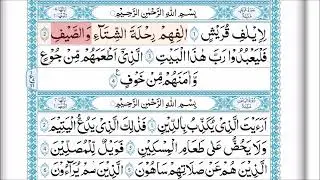 بِسْمِ اللهِ الرَّحْمٰنِ الرَّحِيْمِ
لِاِيْلٰفِ قُرَيْشٍ ۙ اٖلٰفِهِمْ رِحْلَةَ الشِّتَآءِ وَالصَّيْفِ
فَلْيَعْبُدُوْا رَبَّ هٰذَا الْبَيْتِ ۙ الَّذِيْٓ اَطْعَمَهُمْ مِّنْ جُوْعٍ
وَّاٰمَنَهُمْ مِّنْ خَوْفٍ
بِسْمِ اللهِ الرَّحْمٰنِ الرَّحِيْمِ
اَرَءَيْتَ الَّذِيْ يُكَذِّبُ بِالدِّيْنِ ۙ فَذٰلِكَ الَّذِيْ يَدُعُّ الْيَتِيْمَ
وَلَا يَحُضُّ عَلٰى طَعَامِ الْمِسْكِيْنِ ۙ فَوَيْلٌ لِّلْمُصَلِّيْنَ
الَّذِيْنَ هُمْ عَنْ صَلَاتِهِمْ سَاهُوْنَ ۙ الَّذِيْنَ هُمْ يُرَآءُوْنَ